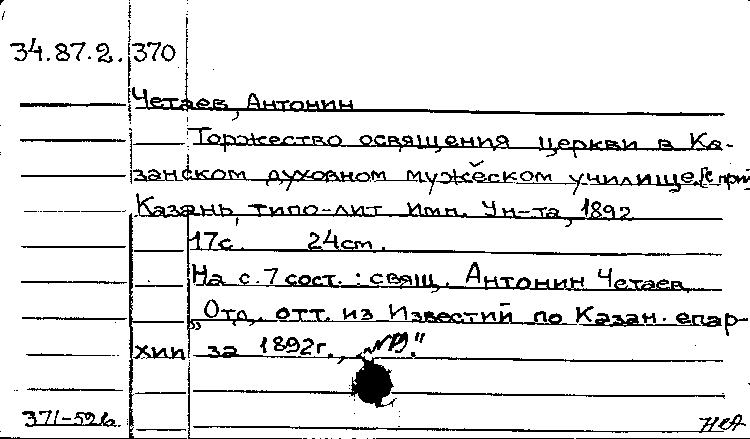 34.87.2.370
Четаев, Антонин
Торжество освящения церкви в Ка-
занском духовном мужеском училище.
Казань, типо-лит. Имп. Ун-та, 1892
17с. 24cm.
На с. 7 сост.: свящ. Антонин Четаев
„Отд. отт. из Известий по Казан. епар-
хии за 1892г., №19."
371-52в.